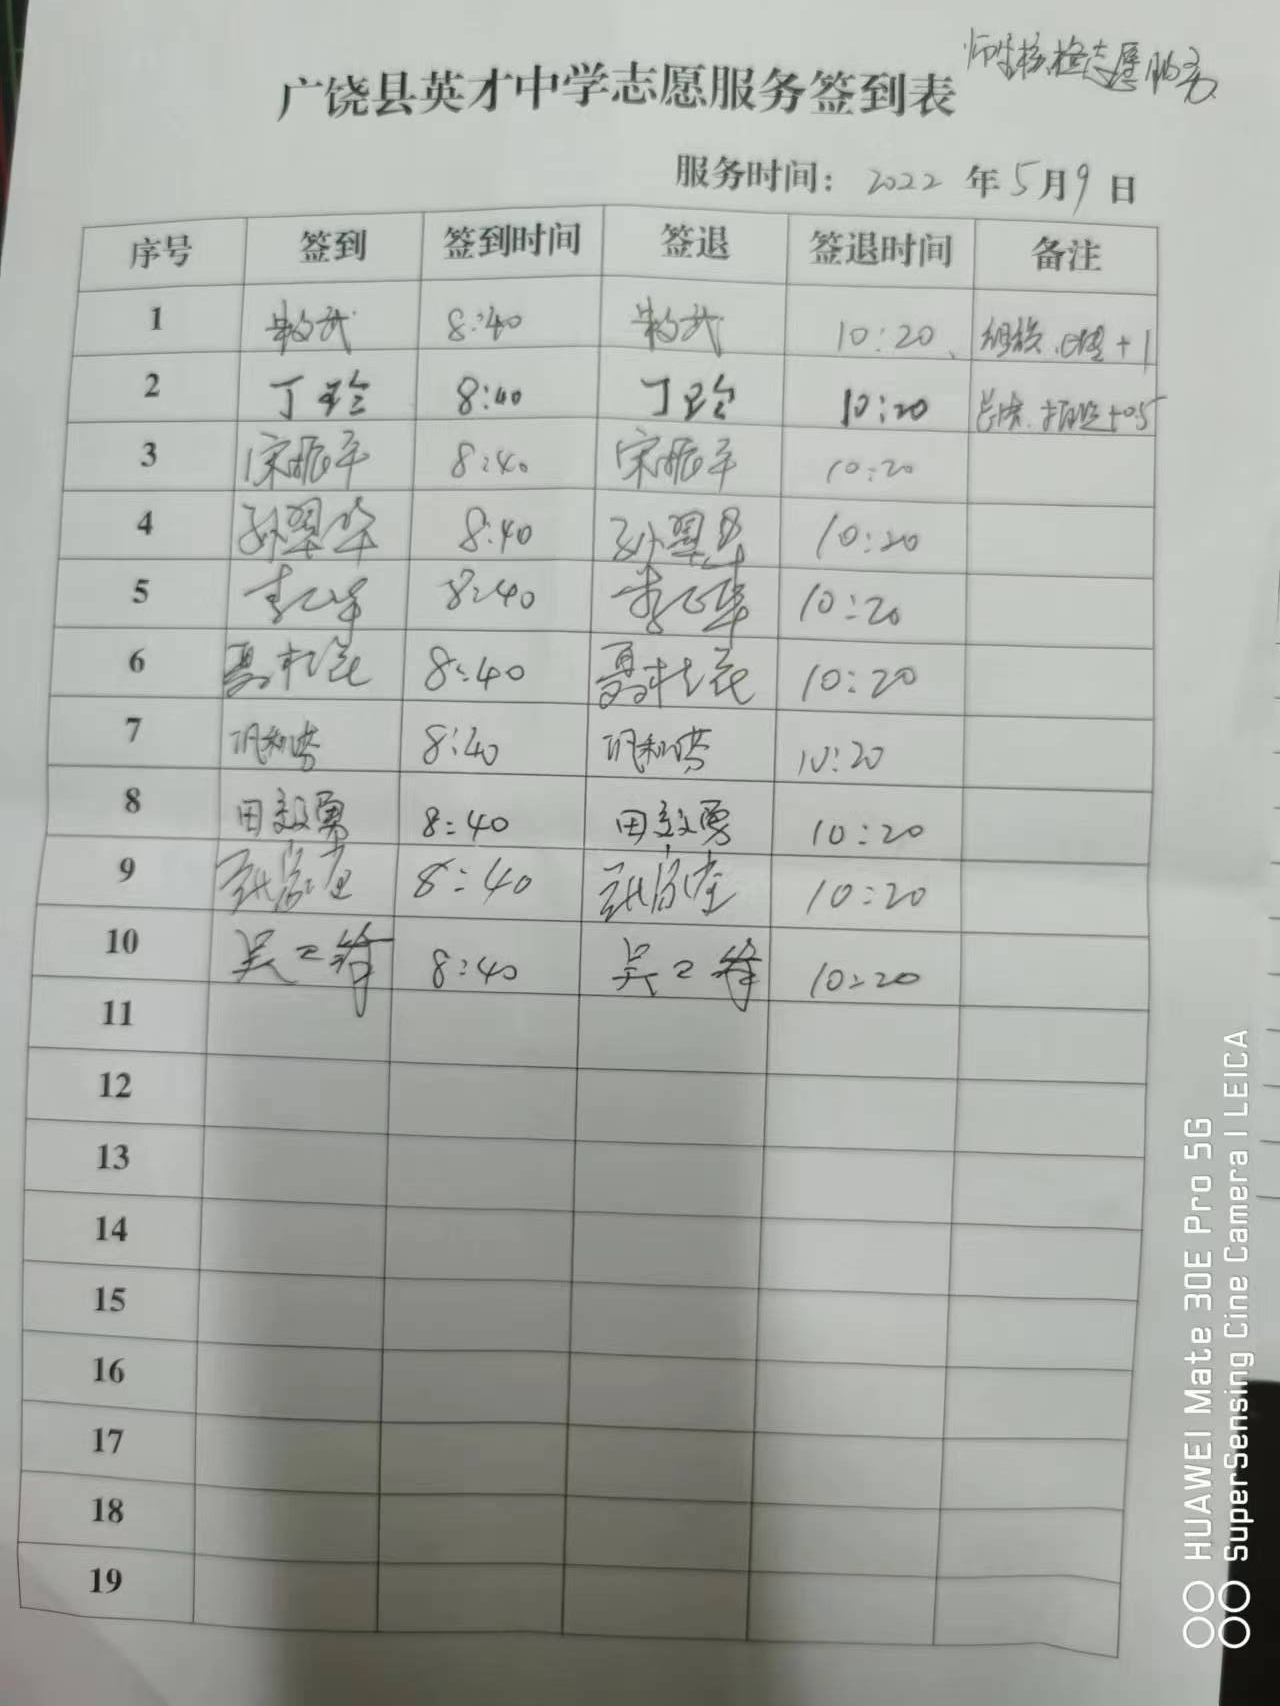 师生核检志愿服务
广饶县英才中学志愿服务签到表
服务时间: 2022 年 5 月 9 日
序号 签到 签到时间 签退 签退时间 备注
1 8:40 10:20 +1
2 丁玲 8:40 丁玲 10:20 +0.5
3 宋振平 8:40 宋振平 10:20
4 孙翠华 8:40 孙翠 10:20
5 8:40 10:20
6 8:40 10:20
7 8:40 10:20
8 田毅勇 8:40 田毅勇 10:20
9 8:40 10:20
10 吴二锋 8:40 吴二锋 10:20
11
12
13
14
15
16
17
18
19
HUAWEI Mate 30E Pro 5G
SuperSensing Cine Camera | LEICA